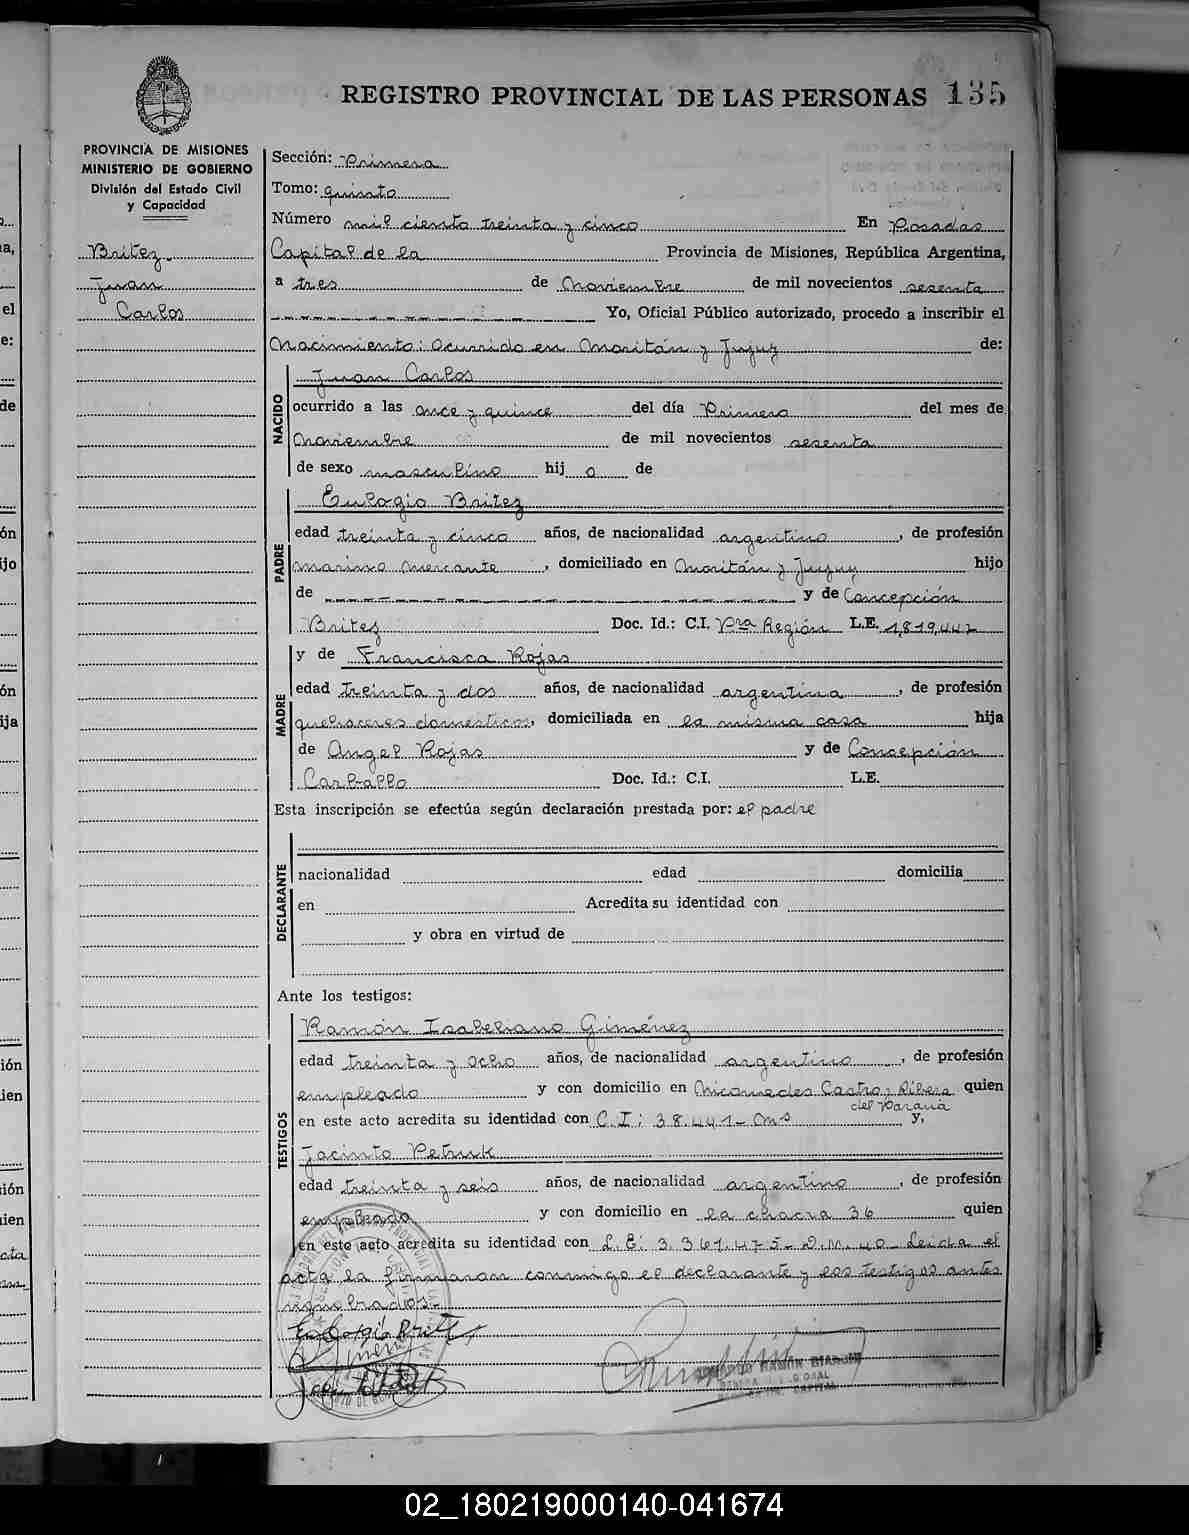 REGISTRO PROVINCIAL DE LAS PERSONAS 135
PROVINCIA DE MISIONES
MINISTERIO DE GOBIERNO
División del Estado Civil
y Capacidad
Britez
Juan
Carlos
Sección: Primera
Tomo: quinto
Número mil ciento treinta y cinco En Posadas
Capital de la Provincia de Misiones, República Argentina,
a tres de Noviembre de mil novecientos sesenta
Yo, Oficial Público autorizado, procedo a inscribir el
Nacimiento: ocurrido en Moritán y Jujuy de:
NACIDO
Juan Carlos
ocurrido a las once y quince del día Primero del mes de
Noviembre de mil novecientos sesenta
de sexo masculino hij o de
PADRE
Eulogio Britez
edad treinta y cinco años, de nacionalidad argentino, de profesión
marino mercante, domiciliado en Moritán y Jujuy hijo
de y de Concepción
Britez Doc. Id.: C.I. Pra Región L.E. 1,819,442
MADRE
y de Francisca Rojas
edad treinta y dos años, de nacionalidad argentina, de profesión
quehaceres domésticos, domiciliada en la misma casa hija
de Angel Rojas y de Concepción
Carballo Doc. Id.: C.I. L.E.
Esta inscripción se efectúa según declaración prestada por: el padre
DECLARANTE
nacionalidad edad domicilia
en Acredita su identidad con
y obra en virtud de
Ante los testigos:
TESTIGOS
Ramón Isabelino Giménez
edad treinta y ocho años, de nacionalidad argentino, de profesión
empleado y con domicilio en Nicomedes Castro y Ribera quien
del Paraná
en este acto acredita su identidad con C.I: 38.441- Ms y,
Jacinto Petruk
edad treinta y seis años, de nacionalidad argentino, de profesión
empleado y con domicilio en la chacra 36 quien
en este acto acredita su identidad con L.E: 3.361.475- D.M. 40- Leída el
acta la firmaron conmigo el declarante y los testigos antes
nombrados.-
Eulogio Britez
RAMÓN BIANCHI
CAPITAL
02_180219000140-041674